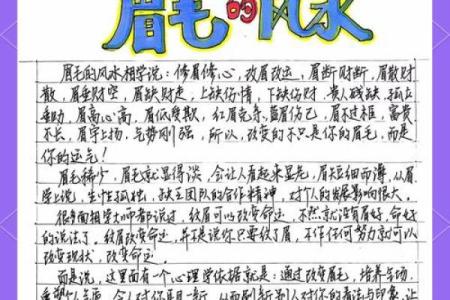 眉毛的风水
眉毛的风水相学说:修眉修心,改眉改运,眉断财断,眉散财
散,眉垂财空,眉缺财走,上缺伤情,下缺伤财,贵人残缺,孤立
无助,眉高心高,眉低受欺,红眉克亲,蓝眉伤己,眉不过框,富贵
不长,眉宇上扬,气势刚强,所以,改变的不只是你的眉毛,而是
你的运气!
眉毛稀少,眉毛就显得淡,会让人看起来显老,眉短细而薄,从眉
学上说,生性孤独,缺乏团队的合作精神,对个人的发展影响很大。
很多面相学大师都说过,纹眉可以改变命运,不然就没有眉好命好
的说法了。纹眉改变命运,并不是说你只要纹了眉,不作任何努力就可以
改变现状,改变命运。
而是说,这里面有一个心理学依据就是:通过改变眉毛,培养气场,